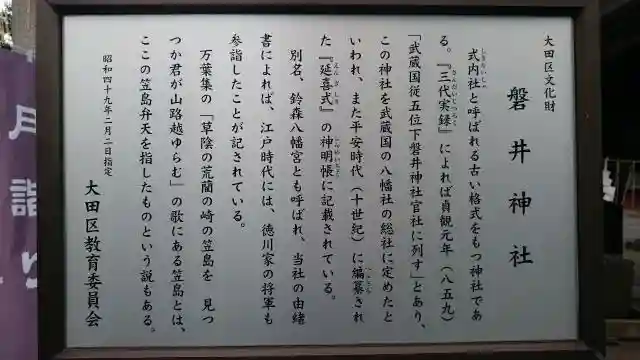 大田区文化財
磐井神社
式内社と呼ばれる古い格式をもつ神社であ
しきないしゃ
る。『三代実録』によれば貞観元年（八五九）
さんだいじつろく
「武蔵国従五位下磐井神社官社に列す」とあり、
この神社を武蔵国の八幡社の総社に定めたと
いわれ、また平安時代（十世紀）に編纂され
へんさん
た『延喜式』の神明帳に記載されている。
えんぎしき
別名、鈴森八幡宮とも呼ばれ、当社の由緒
書によれば、江戸時代には、徳川家の将軍も
参詣したことが記されている。
万葉集の「草陰の荒藺の崎の笠島を 見つ
つか君が山路越ゆらむ」の歌にある笠島とは、
ここの笠島弁天を指したものという説もある。
昭和四十九年二月二日指定
大田区教育委員会
月詣り